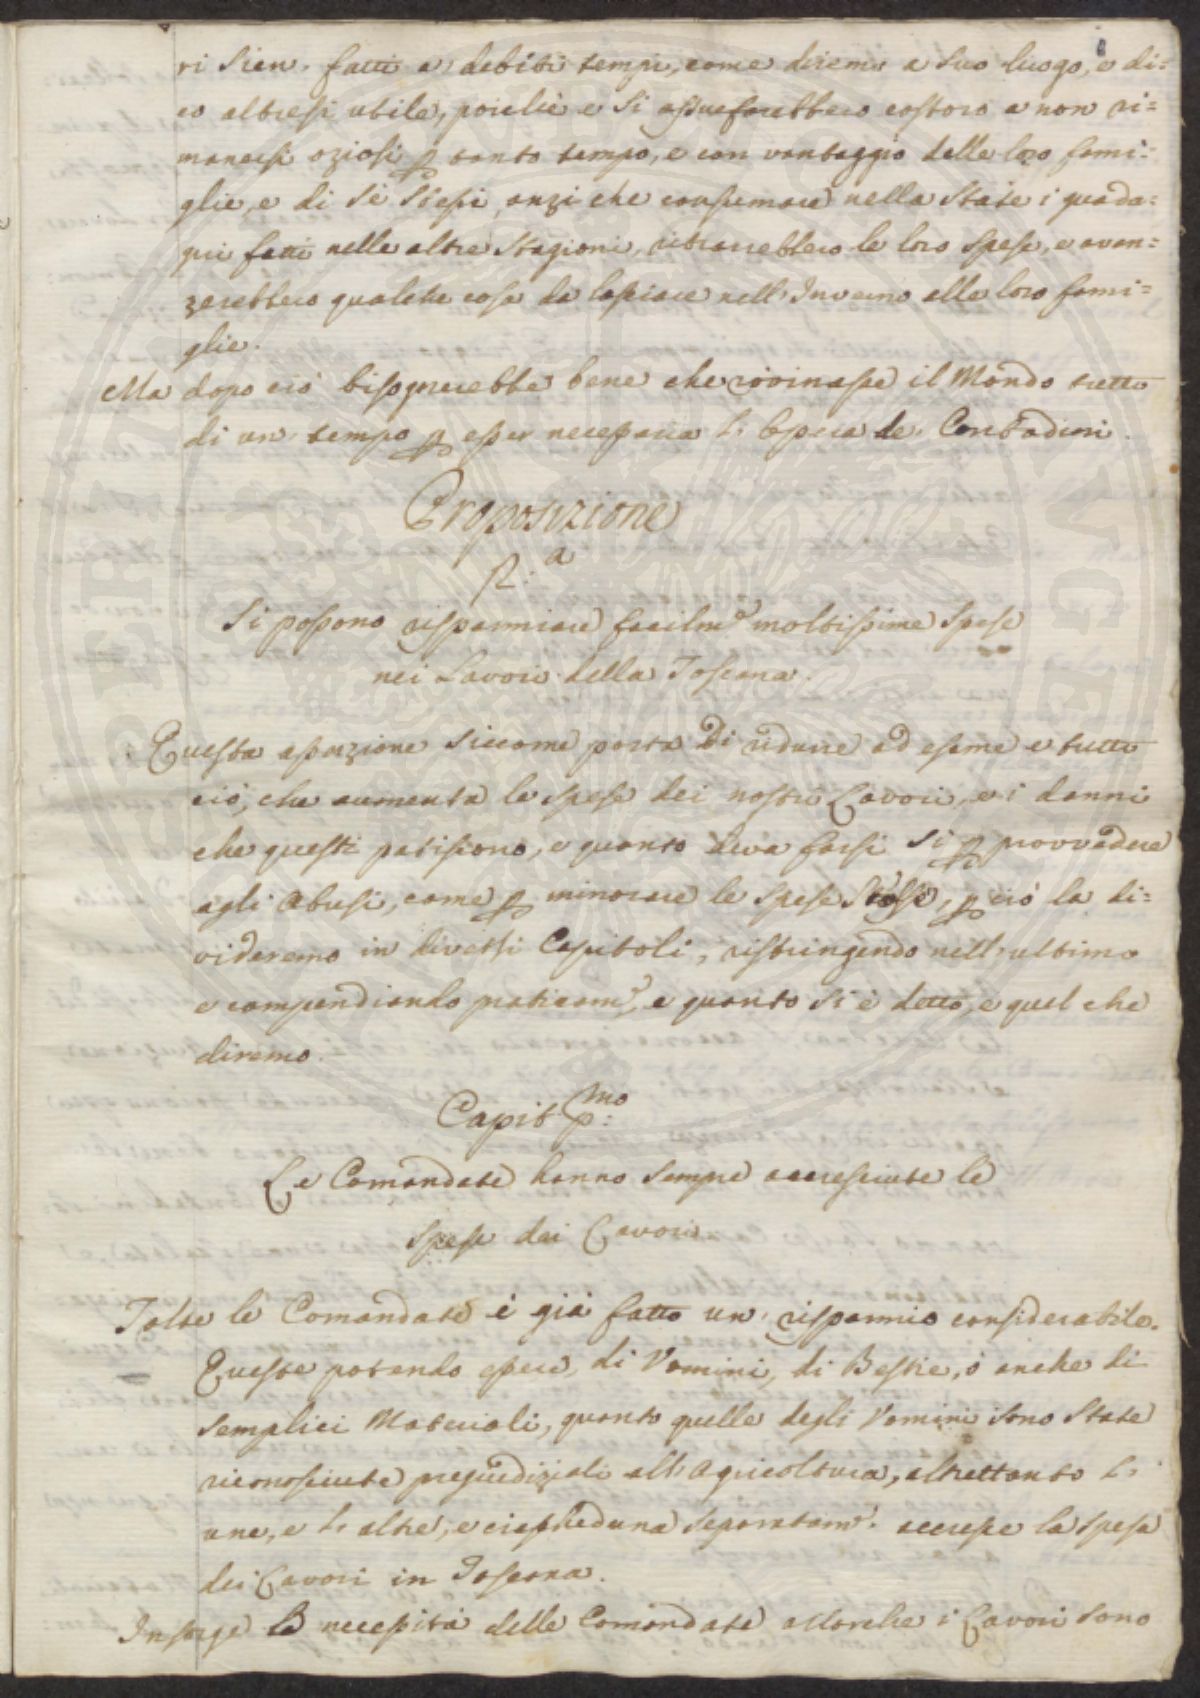 8
ri sien, fatti a, debiti tempi, come diremo a suo luogo, e di=
co altresi utile, poiche e si assuefarebbero costoro a non ri=
manersi oziosi p tanto tempo, e con vantaggio delle loro fami=
glie, e di sè stessi, anzi che consumare nella state i guada=
gni fatti nelle altre stagioni, ritrarrebbero le loro spese, e avan=
zerebbero qualche cosa da lasciare nell'Inverno alle loro fami=
glie.
Ma dopo ciò bisognerebbe bene che rovinasse il Mondo tutto
di un, tempo p esser necessaria l'opera de' Contadini.
Proposizione
2.a
Si possono risparmiare facilm.e moltissime spese
nei Lavori della Toscana.
Questa asserzione siccome porta di ridurre ad esame e tutto
ciò, che aumenta le spese dei nostri Lavori, e i danni
che questi patiscono, e quanto deva farsi si p provvedere
agli Abusi, come p minorare le spese stesse, p ciò la di=
videremo in diversi Capitoli, ristringendo nell'ultimo
e compendiando praticam.e, e quanto si è detto, e quel che
diremo.
Capit. p.mo
Le Comandate hanno sempre accresciute le
spese dei Lavori
Tolte le Comandate è già fatto un, risparmio considerabile.
Queste potendo essere, di Vomini, di Bestie, ò anche di
semplici Materiali, quanto quelle degli Vomini sono state
riconosciute pregiudiziali all'Agricoltura, altrettanto l'
une, e l'altre, e ciascheduna separatam.e accresse la spesa
dei Lavori in Toscana.
Insorge la necessità delle Comandate allorche i Lavori sono